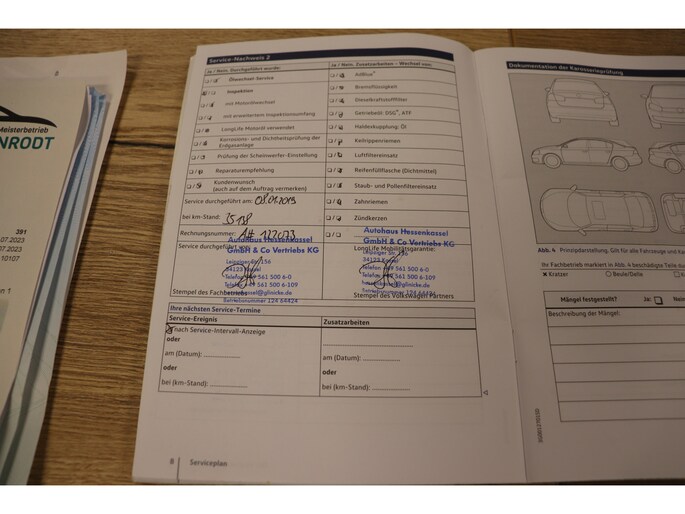 Meisterbetrieb
NRODT
391
.07.2023
.07.2023
10107
Service-Nachweis 2
Ja / Nein, Durchgeführt wurde:
Ölwechsel-Service
Inspektion
mit Motorölwechsel
mit erweitertem Inspektionsumfang
LongLife Motoröl verwendet
Korrosions- und Dichtheitsprüfung der
Erdgasanlage
Prüfung der Scheinwerfer-Einstellung
Reparaturempfehlung
Kundenwunsch
(auch auf dem Auftrag vermerken)
Service durchgeführt am: 08.01.2019
bei km-Stand:
Rechnungsnummer:
Service durchgeführt von:
Autohaus Hessenkassel
GmbH & Co Vertriebs KG
Leipziger Str. 156
34123 Kassel
Telefon +49 561 500 6-0
Telefax +49 561 500 6-109
hessenkassel@glinicke.de
Betriebsnummer 124 64424
Stempel des Fachbetriebs
Ja / Nein, Zusatzarbeiten – Wechsel von:
AdBlue®
Bremsflüssigkeit
Dieselkraftstofffilter
Getriebeöl: DSG®, ATF
Haldexkupplung: Öl
Keilrippenriemen
Luftfiltereinsatz
Reifenfüllflasche (Dichtmittel)
Staub- und Pollenfiltereinsatz
Zahnriemen
Zündkerzen
LongLife Mobilitätsgarantie:
Autohaus Hessenkassel
GmbH & Co Vertriebs KG
Leipziger Str. 156
34123 Kassel
Telefon +49 561 500 6-0
Telefax +49 561 500 6-109
hessenkassel@glinicke.de
Betriebsnummer 124 64424
Stempel des Volkswagen Partners
Ihre nächsten Service-Termine
Service-Ereignis
nach Service-Intervall-Anzeige
oder
am (Datum):
oder
bei (km-Stand):
Zusatzarbeiten
am (Datum):
oder
bei (km-Stand):
8 Serviceplan
Dokumentation der Karosserieprüfung
Abb. 4 Prinzipdarstellung. Gilt für alle Fahrzeuge und
Ihr Fachbetrieb markiert in Abb. 4 beschädigte Teile
Kratzer
Beule/Delle
Mängel festgestellt? Ja: Nein
Beschreibung der Mängel: